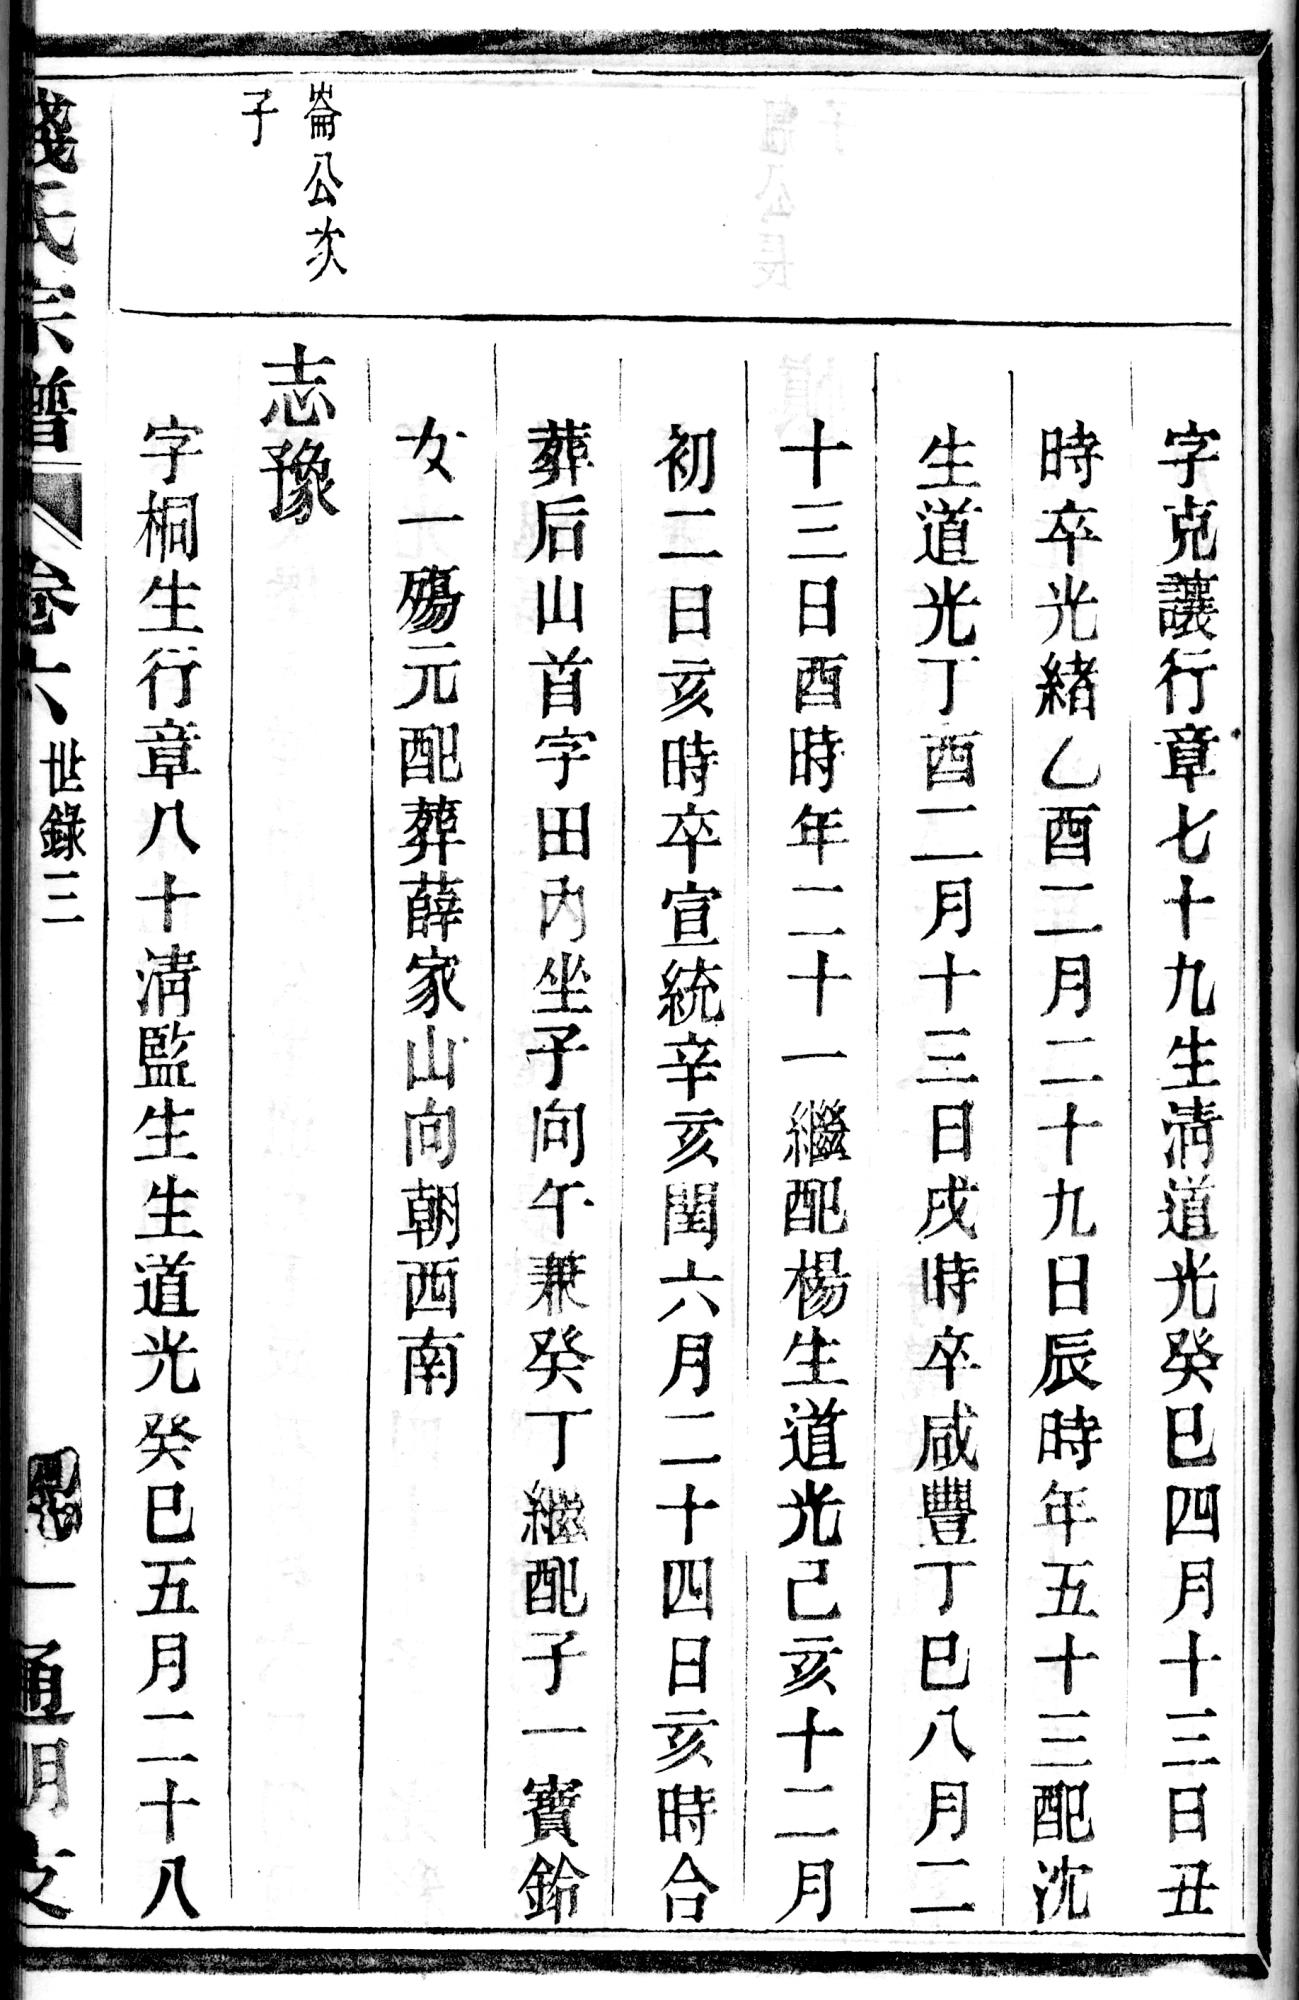 字克讓行章七十九生淸道光癸巳四月十三日丑
時卒光緒乙酉二月二十九日辰時年五十三配沈
生道光丁酉二月十三日戌時卒咸豐丁巳八月二
十三日酉時年二十一繼配楊生道光己亥十二月
初二日亥時卒宣統辛亥閏六月二十四日亥時合
葬后山首字田內坐子向午兼癸丁繼配子一寶鈴
女一殤元配葬薛家山向朝西南
崙公次
子
志豫
字桐生行章八十淸監生生道光癸巳五月二十八
錢氏宗譜
卷六
世錄三
一
通明支